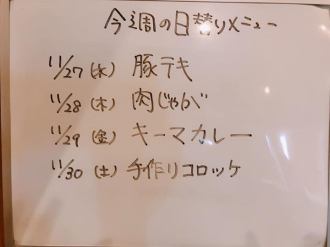 今週の日替りメニュー
11/27 (水) 豚テキ
11/28 (木) 肉じゃが
11/29 (金) キーマカレー
11/30 (土) 手作りコロッケ